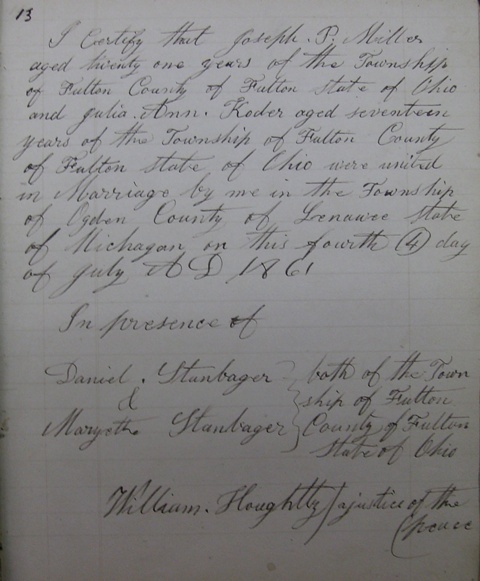 13
I Certify that Joseph. P. Miller
aged twenty one years of the Township
of Fulton County of Fulton state of Ohio
and Julia. Ann. Koder aged seventeen
years of the Township of Fulton County
of Fulton state of Ohio were united
in Marriage by me in the Township
of Ogden County of Lenawee state
of Michagan on this fourth (4) day
of July A D 1861
In presence of
Daniel. Stanbager } both of the Town
& ship of Fulton
Maryette Stanbager County of Fulton
state of Ohio
William. Houghtly ajustice of the
peace